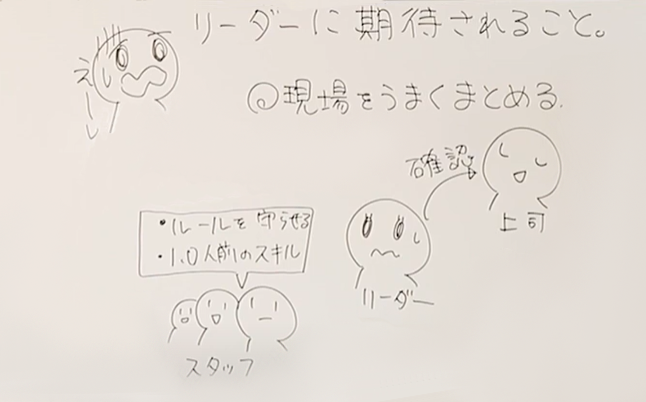 リーダーに期待されること。
えーい
◎現場をうまくまとめる.
確認
上司
・ルールを守らせる
・1.0人前のスキル
リーダー
スタッフ